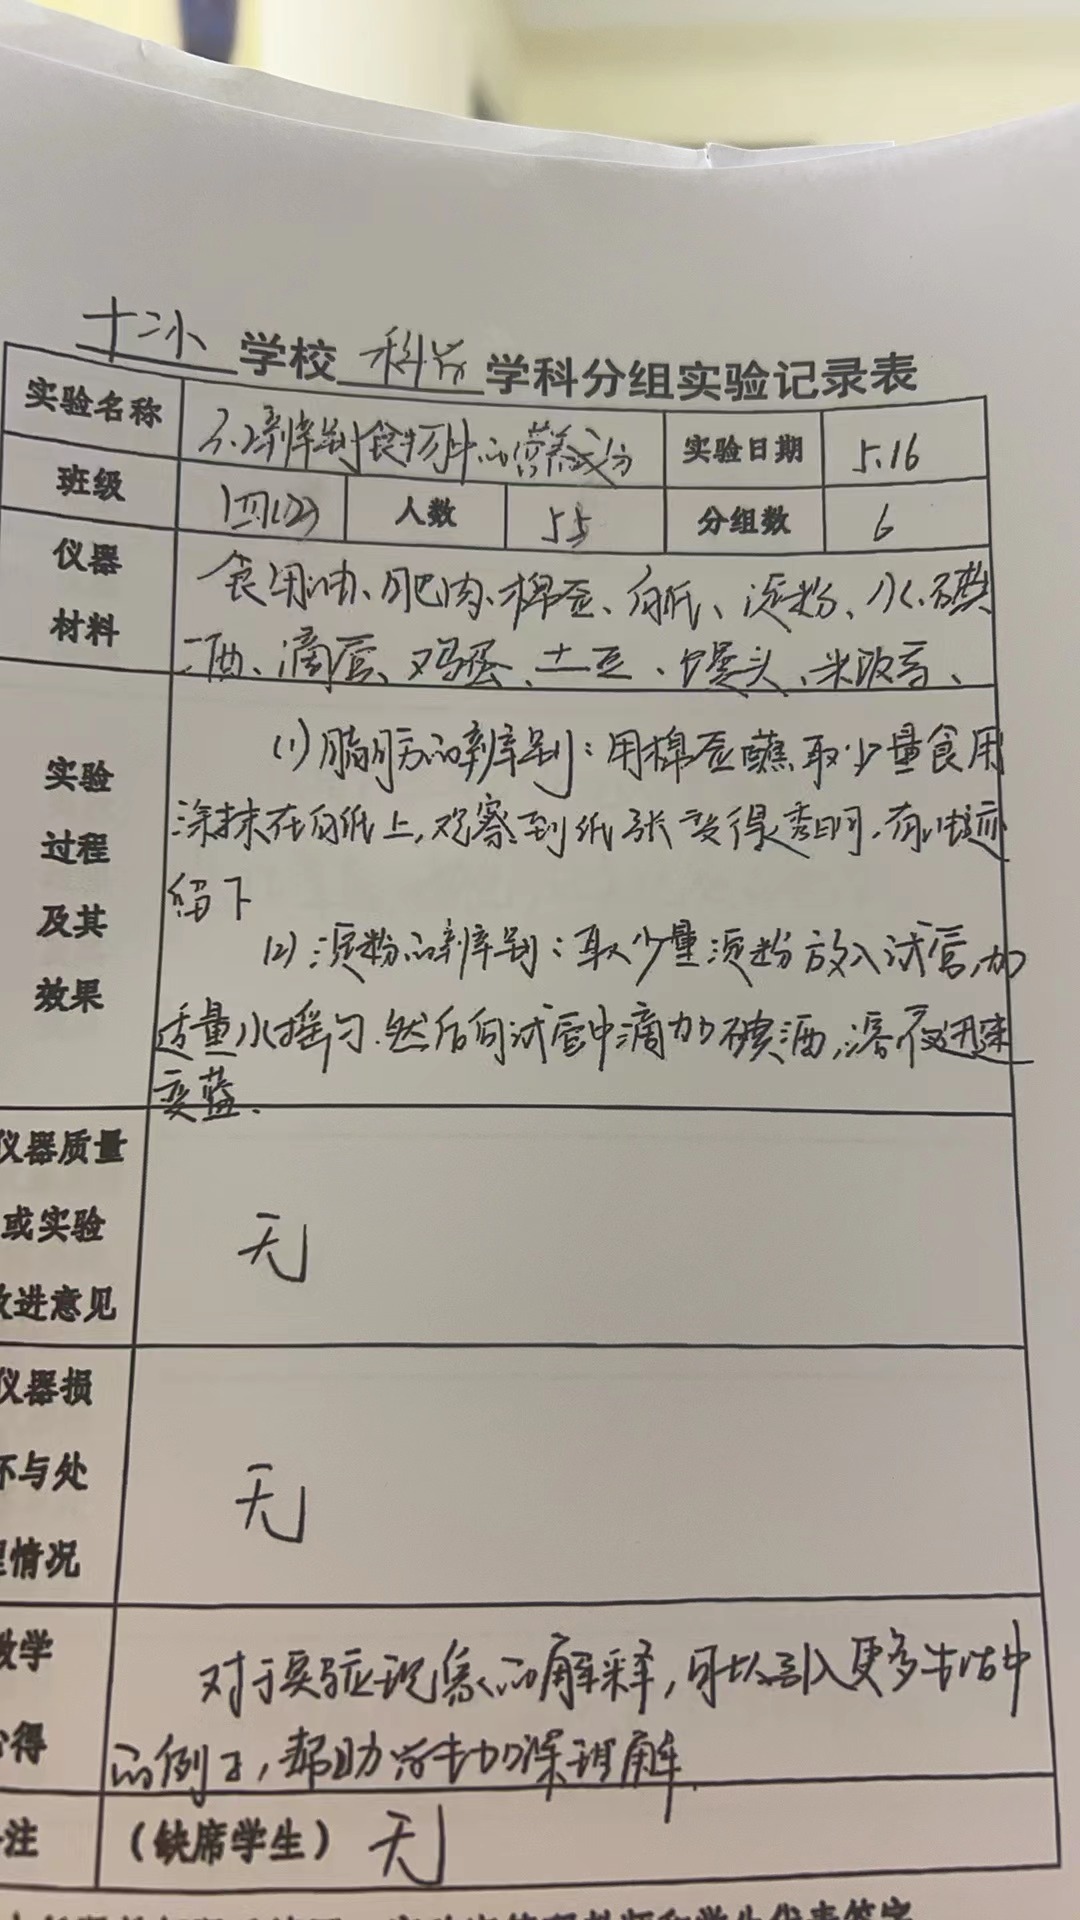 十二小学校 科学 学科分组实验记录表
实验名称 3.2辨别食物中的营养成分 实验日期 5.16
班级 四(2) 人数 55 分组数 6
仪器 食用油、肥肉、棉签、白纸、淀粉、水、碘
材料 酒、滴管、鸡蛋、土豆、馒头、米饭等、
(1)脂肪的辨别:用棉签蘸取少量食用
实验
涂抹在白纸上,观察到纸张变得透明,有油迹
过程
留下
及其
(2)淀粉的辨别:取少量淀粉放入试管,加
效果
适量水摇匀.然后向试管中滴加碘酒,溶液迅速
变蓝.
仪器质量
或实验 无
改进意见
仪器损
坏与处 无
理情况
教学 对于实验现象的解释,可以引入更多生活中
心得 的例子,帮助学生加深理解.
注 (缺席学生) 无